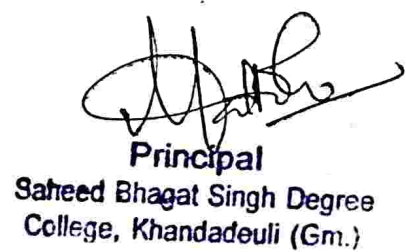 Principal
Saheed Bhagat Singh Degree
College, Khandadeuli (Gm.)